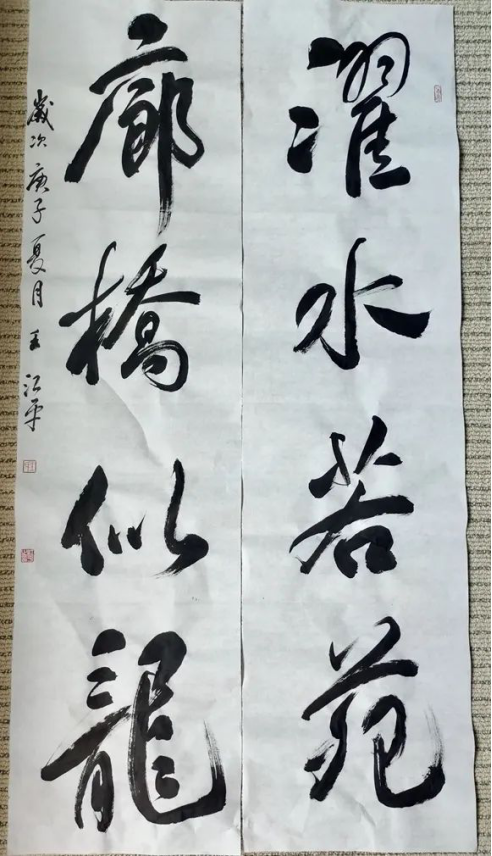 濯水若苑
廊橋似龍
歲次庚子夏月王江平